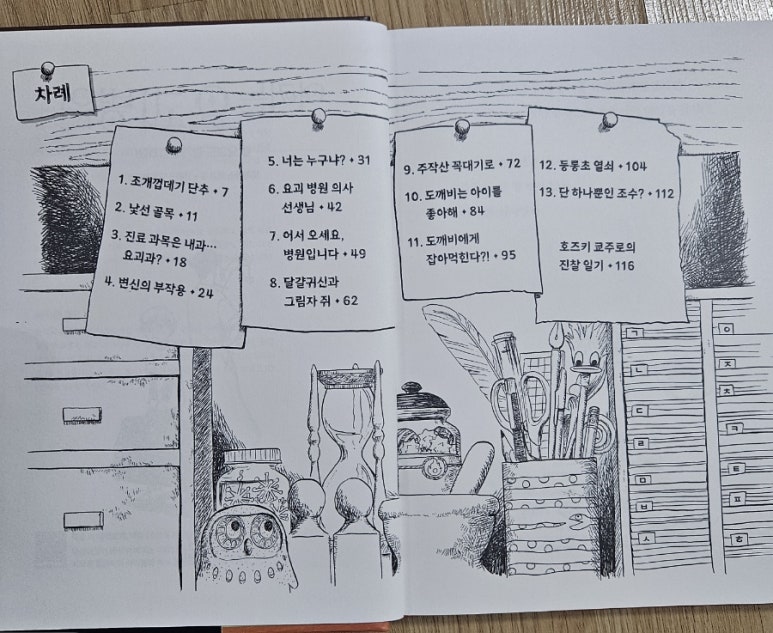 차례
1. 조개껍데기 단추 • 7
2. 낯선 골목 • 11
3. 진료 과목은 내과…
요괴과? • 18
4. 변신의 부작용 • 24
5. 너는 누구냐? • 31
6. 요괴 병원 의사
선생님 • 42
7. 어서 오세요,
병원입니다 • 49
8. 달걀귀신과
그림자 쥐 • 62
9. 주작산 꼭대기로 • 72
10. 도깨비는 아이를
좋아해 • 84
11. 도깨비에게
잡아먹힌다?! • 95
12. 둥퉁초 열쇠 • 104
13. 단 하나뿐인 조수? • 112
호즈키 쿄주로의
진찰 일기 • 116
ㄱ
ㄴ
ㄷ
ㄹ
ㅁ
ㅂ
ㅅ
ㅇ
ㅈ
ㅊ
ㅋ
ㅌ
ㅍ
ㅎ